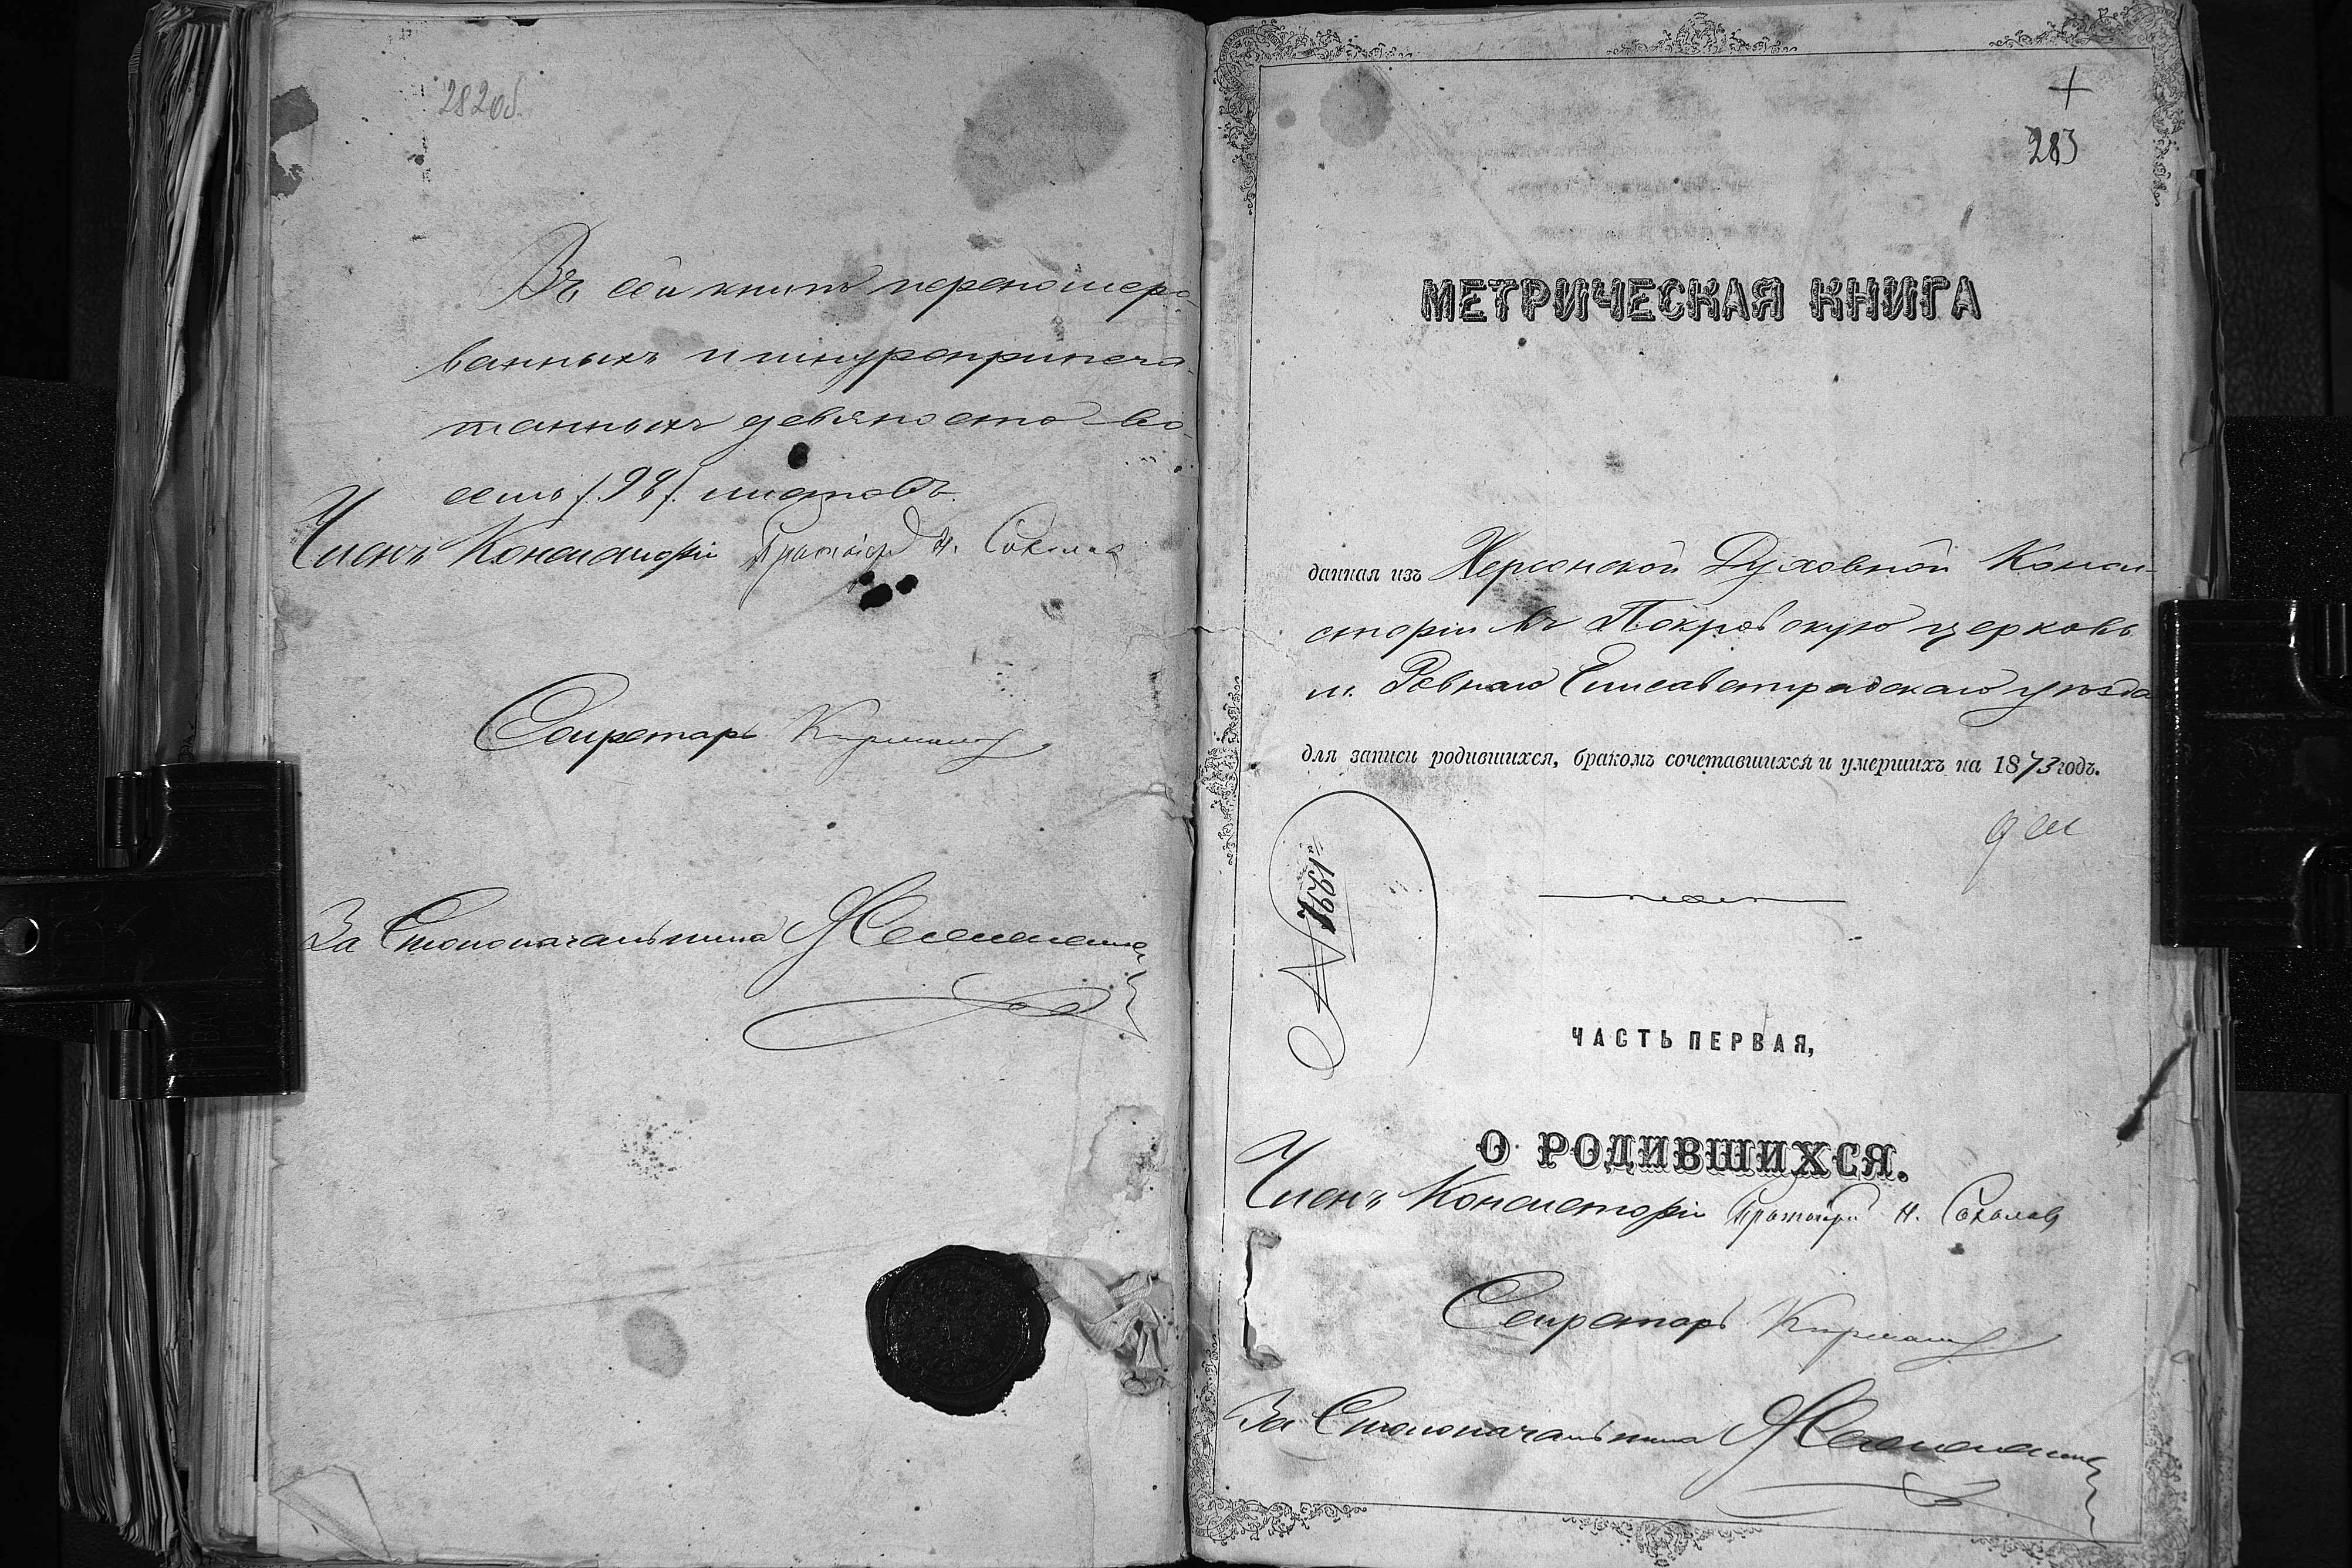 282об.
Въ сей книгѣ перенумеро-
ванныхъ и шнуроприпеча-
танныхъ девяносто во-
семь /98/ листовъ.
Членъ Консисторіи Протоіерей Н. Соколовъ
Секретарь
За Столоначальника
+
283
МЕТРИЧЕСКАЯ КНИГА
данная изъ Херсонской Духовной Конси-
сторіи въ Покровскую церковь
м. Ровнаго Елисаветградскаго уѣзда
для записи родившихся, бракомъ сочетавшихся и умершихъ на 1873 годъ.
№ 1991
ЧАСТЬ ПЕРВАЯ,
О РОДИВШИХСЯ.
Членъ Консисторіи Протоіерей Н. Соколовъ
Секретарь
За Столоначальника